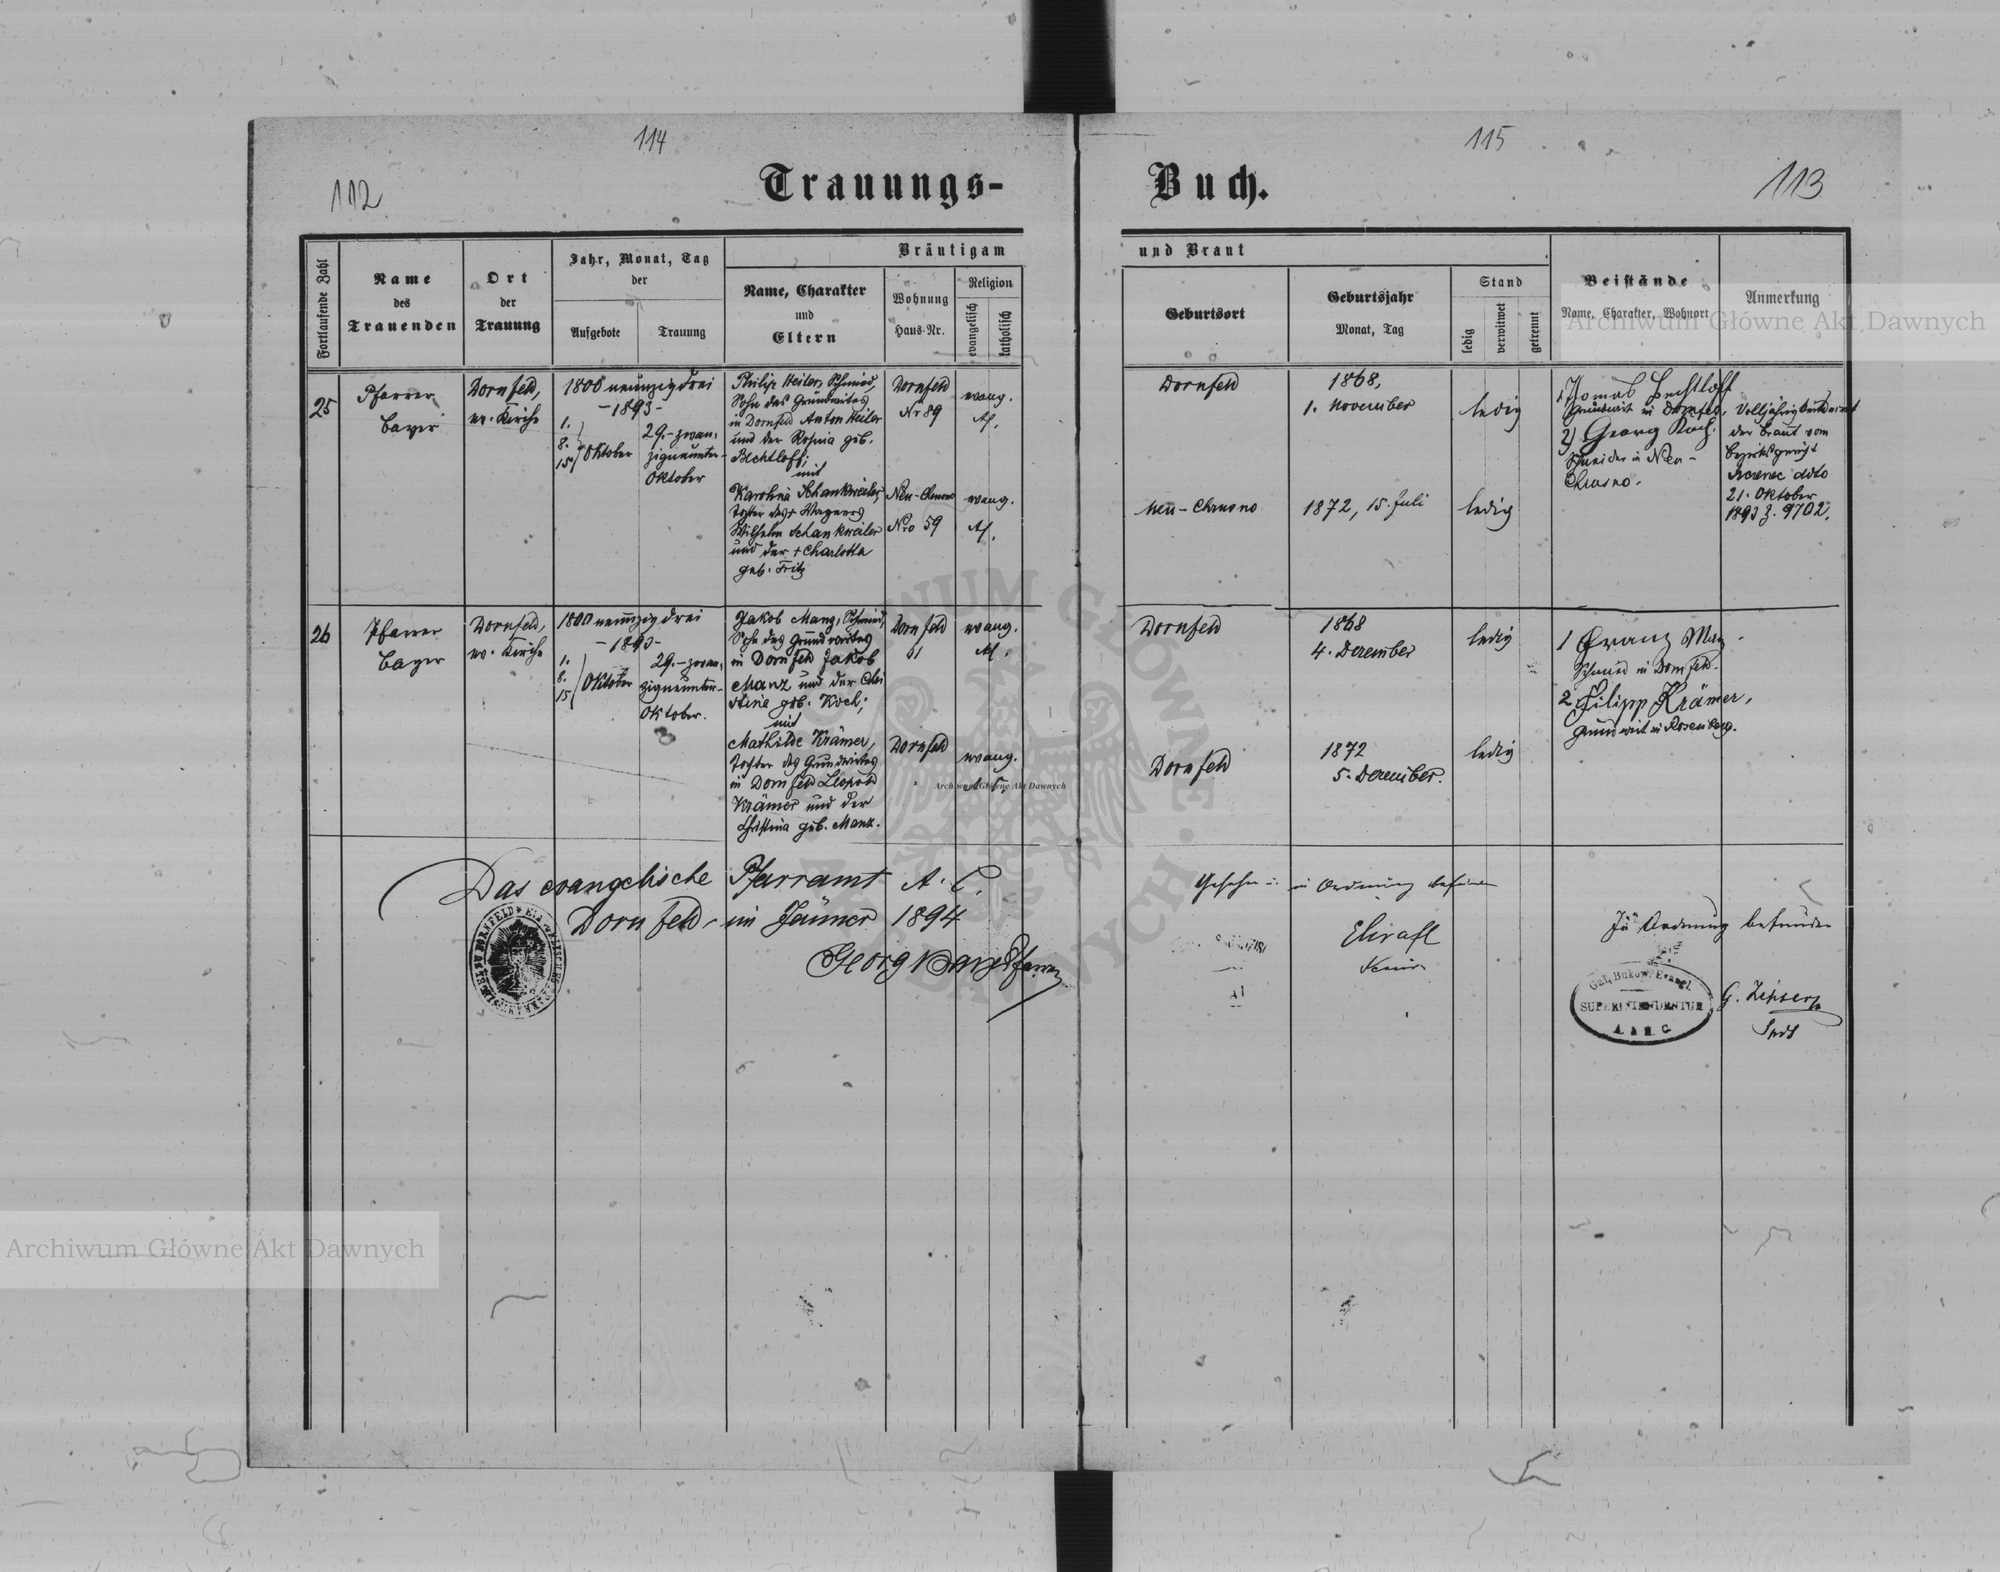 114
115
112
Trauungs-
Buch.
113
Fortlaufende Zahl
Name
des
Trauenden
Ort
der
Trauung
Jahr, Monat, Tag
der
Aufgebote
Trauung
Bräutigam
und Braut
Name, Charakter
und
Eltern
Wohnung
Haus-Nr.
Religion
evangelisch
katholisch
Geburtsort
Geburtsjahr
Monat, Tag
Stand
ledig
verwitwet
getrennt
Beistände
Name, Charakter, Wohnort
Anmerkung
Archiwum Główne Akt Dawnych
25
Pfarrer
Bayer
Dornfeld,
ev. Kirche
1800 neunzig drei
- 1893 -
1.
8.
15
Oktober
29.- zwan-
zigneunter-
Oktober
Philip Heiler, Schmied,
Sohn des Grundwirtes
in Dornfeld Anton Heiler
und der Rosina geb.
Bechtloff;
mit
Karolina Schankweiler,
Tochter des + Wagners
Wilhelm Schankweiler
und der + Charlotta
geb. Fritz
Dornfeld
Nr 89
evang.
Neu-Chrusno
Nro 59
evang.
Dornfeld
1868,
1. November
ledig
Neu-Chrusno
1872, 15. Juli
ledig
1) Thomas Bechtloff
Grundwirt in Dornfeld,
2) Georg Koch.
Schneider in Neu-
Chrusno.
der Braut vom
Bezirksgericht
ddto
21. Oktober
1893 Z. 9702.
26
Pfarrer
Bayer
Dornfeld,
ev. Kirche
1800 neunzig drei
- 1893 -
1.
8.
15
Oktober
29.- zwan-
zigneunter-
Oktober.
Jakob Manz, Schmied,
Sohn des Grundwirtes
in Dornfeld Jakob
Manz und der Chri
stina geb. Koch;
mit
Mathilde Krämer,
Tochter des Grundwirtes
in Dornfeld Leopold
Krämer und der
Christina geb. Manz.
Dornfeld
61
evang.
Dornfeld
evang.
Dornfeld
1868
4. Dezember
ledig
Dornfeld
1872
5. Dezember.
ledig
1 Franz Manz
Schmied in Dornfeld.
2 Filipp Krämer,
Grundwirt in Rosenberg.
Archiwum Główne Akt Dawnych
Das evangelische Pfarramt A. C.
Dornfeld, im Jänner 1894
Georg Bayer Pfarrer
Gesehen u. in Ordnung befunden
Senior
In Ordnung befunden
Gal. Bukow. Evangl.
SUPERINTENDENTUR
A. & H. C.
G. Zipser
Spdt
Archiwum Główne Akt Dawnych